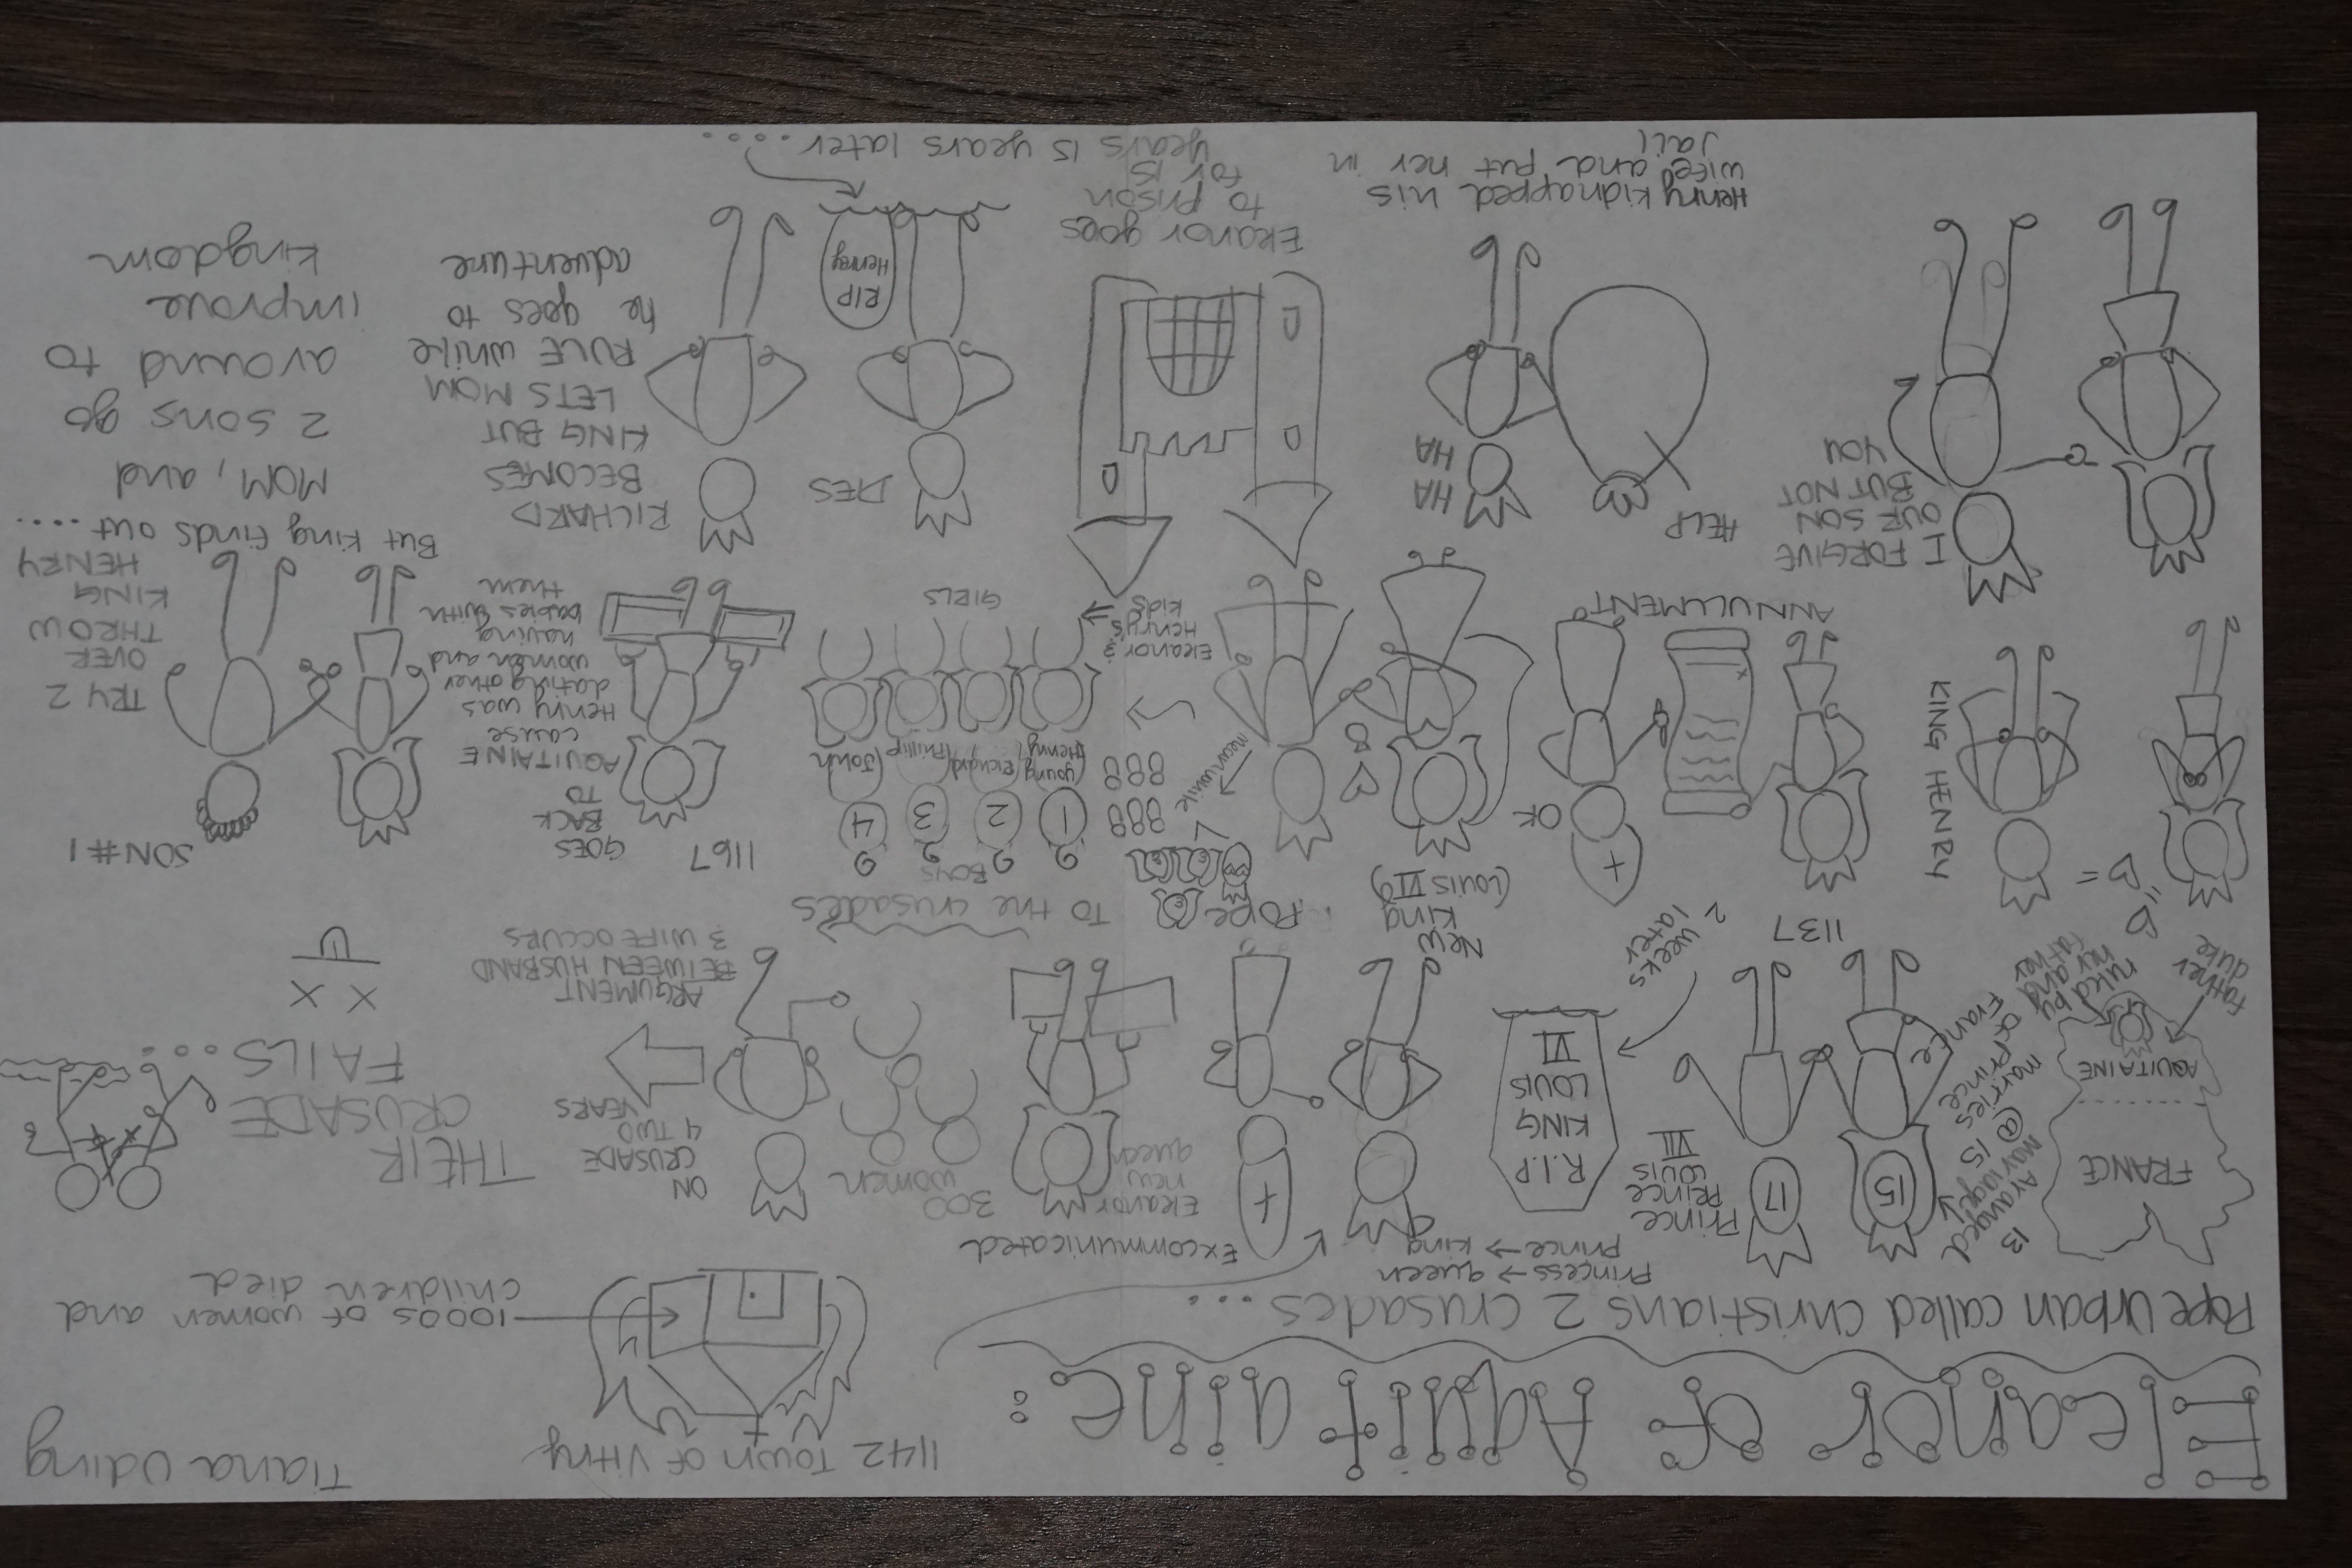 Eleanor of Aquitaine:
1142 Town of Vitry
Tiana Uding
Pope Urban called Christians 2 crusades....
1000s of women and
children died
FRANCE
AQUITAINE
father
duke
ruled by
her and
father
13
Aranged
marriage
@ 15
marries
Prince
of
France
15
17
1137
Prince
Prince
LOUIS
VII
R.I.P
KING
LOUIS
VI
2 weeks
later
Princess → queen
prince → king
New
King
(LOUIS VII)
Excommunicated
Eleanor
new
queen
300
women
Pope
To the crusades
ON
CRUSADE
4 TWO
YEARS
ARGUMENT
BETWEEN HUSBAND
3 WIFE OCCURS
THEIR
CRUSADE
FAILS...
X X
KING HENRY
OK
ANNULLMENT
meanwhile
BOYS
1 2 3 4
(young
Henry)
(Richard)
(Phillip)
(John)
GIRLS
Eleanor &
Henry's
kids
1167
GOES
BACK
TO
AQUITAINE
cause
Henry was
dating other
women and
having
babies with
them
SON #1
TRY 2
OVER
THROW
KING
HENRY
But king finds out ....
I FORGIVE
OUR SON
BUT NOT
YOU
HELP
HA
HA
Henry kidnapped his
wife and put her in
Jail
Eleanor goes
to prison
for 15
years 15 years later....
DIES
RIP
Henry
RICHARD
BECOMES
KING BUT
LETS MOM
RULE WHILE
he goes to
adventure
MOM, and
2 sons go
around to
improve
kingdom